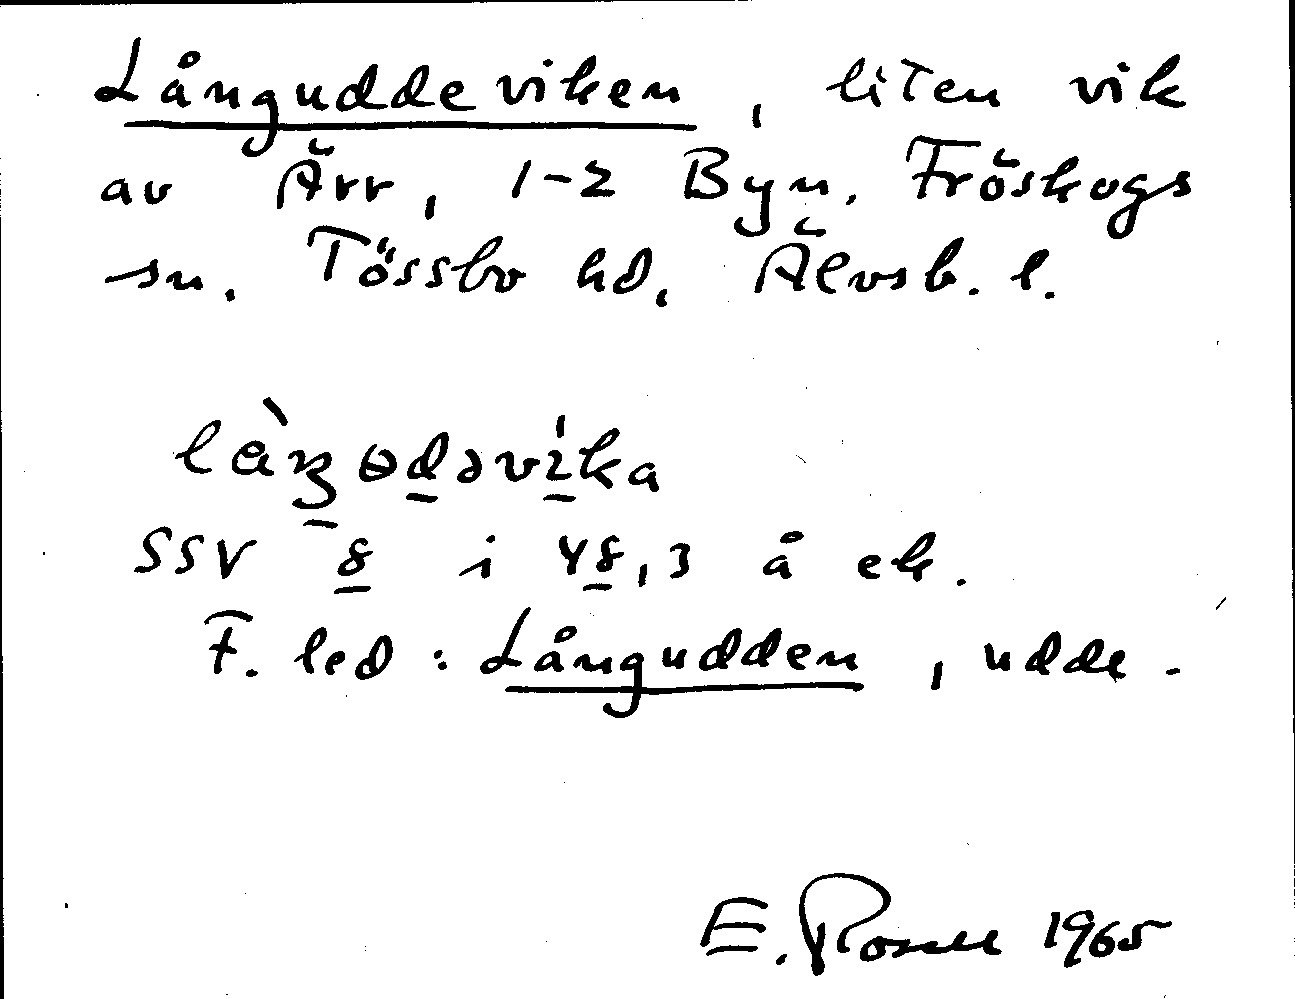 Långuddeviken, liten vik
av Ärr, 1-2 Byn. Fröskogs
sn. Tössbo hd, Älvsb. l.
SSV 8 i 48,3 å ek.
F. led: Långudden, udde.
E. 1965